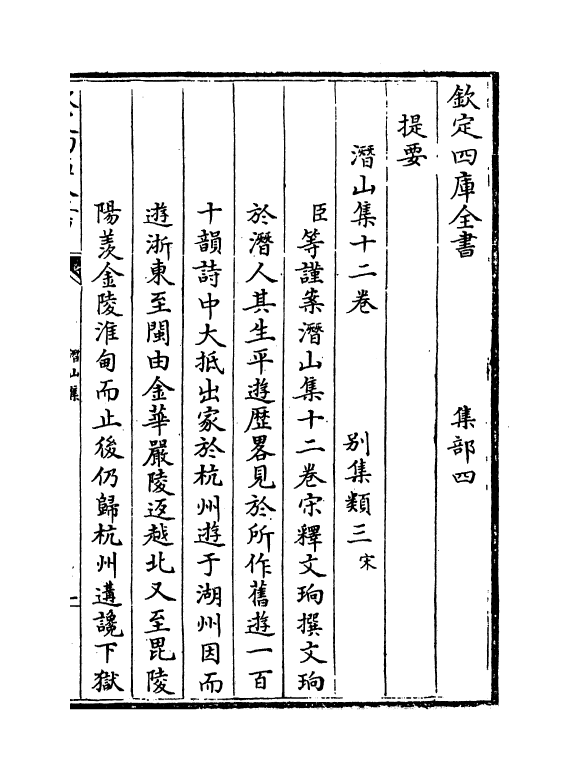 欽定四庫全書　集部四
提要
潛山集十二卷　別集類三宋
臣等謹案潛山集十二卷宋釋文珦撰文珦
於潛人其生平遊歷畧見於所作舊遊一百
十韻詩中大抵出家於杭州遊于湖州因而
遊浙東至閩由金華嚴陵返越北又至毘陵
陽羨金陵淮甸而止後仍歸杭州遘讒下獄
潛山集